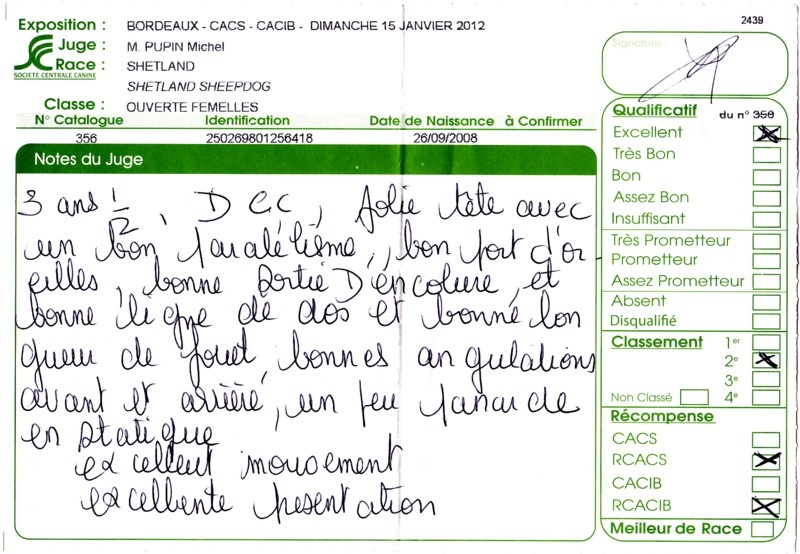 Exposition : BORDEAUX - CACS - CACIB - DIMANCHE 15 JANVIER 2012
2439
Juge : M. PUPIN Michel
Race : SHETLAND
SOCIETE CENTRALE CANINE
SHETLAND SHEEPDOG
Classe : OUVERTE FEMELLES
N° Catalogue Identification Date de Naissance à Confirmer
356 250269801256418 26/09/2008
Notes du Juge
3 ans 1/2, D CC, Jolie tête avec
un bon paralélisme, bon port d'or
eilles, bonne sortie D'encolure, et
bonne ligne de dos et bonne lon
gueur de fouet, bonnes angulations
avant et arrière, un peu panarde
en statique
excellent mouvement
excellente presentation
Signature :
Qualificatif du n° 356
Excellent
Très Bon
Bon
Assez Bon
Insuffisant
Très Prometteur
Prometteur
Assez Prometteur
Absent
Disqualifié
Classement 1er
2e
3e
Non Classé 4e
Récompense
CACS
RCACS
CACIB
RCACIB
Meilleur de Race